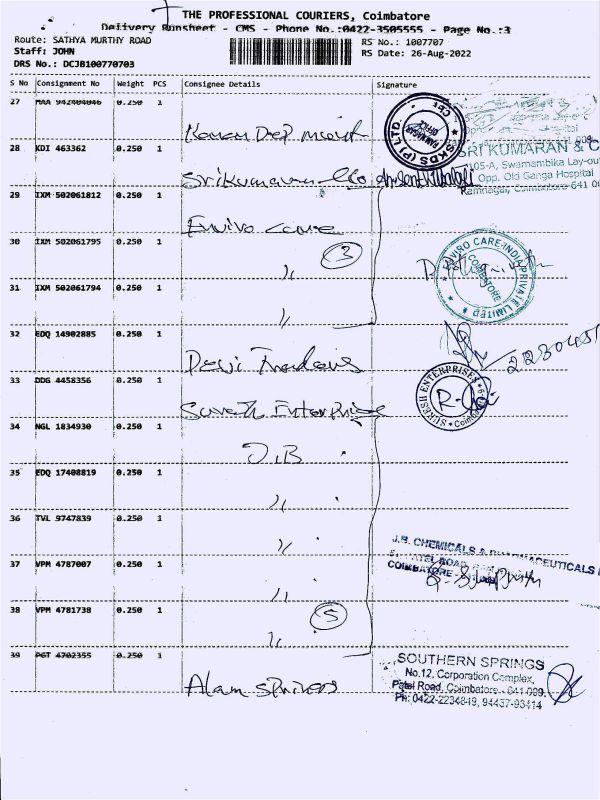 THE PROFESSIONAL COURIERS, Coimbatore
Delivery Runsheet - CMS - Phone No.:0422-3505555 - Page No.:3
Route: SATHYA MURTHY ROAD
Staff: JOHN
DRS No.: DCJB100770703
RS No.: 1007707
RS Date: 26-Aug-2022
S No Consignment No Weight PCS Consignee Details Signature
27 MAA 942404046 0.250 1
28 KDI 463362 0.250 1
SRI KUMARAN & C
105-A, Swamambika Lay-out
Opp. Old Ganga Hospital
Ramnagar, Coimbatore 641 0
29 IXM 502061812 0.250 1
Enviro care
30 IXM 502061795 0.250 1
〃 3
ENVIRO CARE INDIA PRIVATE LIMITED
COIMBATORE
31 IXM 502061794 0.250 1
〃
32 EDQ 14902885 0.250 1
Devi Traders
33 DDG 4458356 0.250 1
Suresh Enterprise
SURESH ENTERPRISES
34 NGL 1834930 0.250 1
J.B
35 EDQ 17408819 0.250 1
〃
36 TVL 9747839 0.250 1
〃
J.B. CHEMICALS & PHARMACEUTICALS
COIMBATORE
37 VPM 4787007 0.250 1
〃
38 VPM 4781738 0.250 1
〃 5
39 PGT 4702355 0.250 1
SOUTHERN SPRINGS
No.12, Corporation Complex,
Patel Road, Coimbatore - 641 009.
Ph: 0422-2234849, 94437-93414